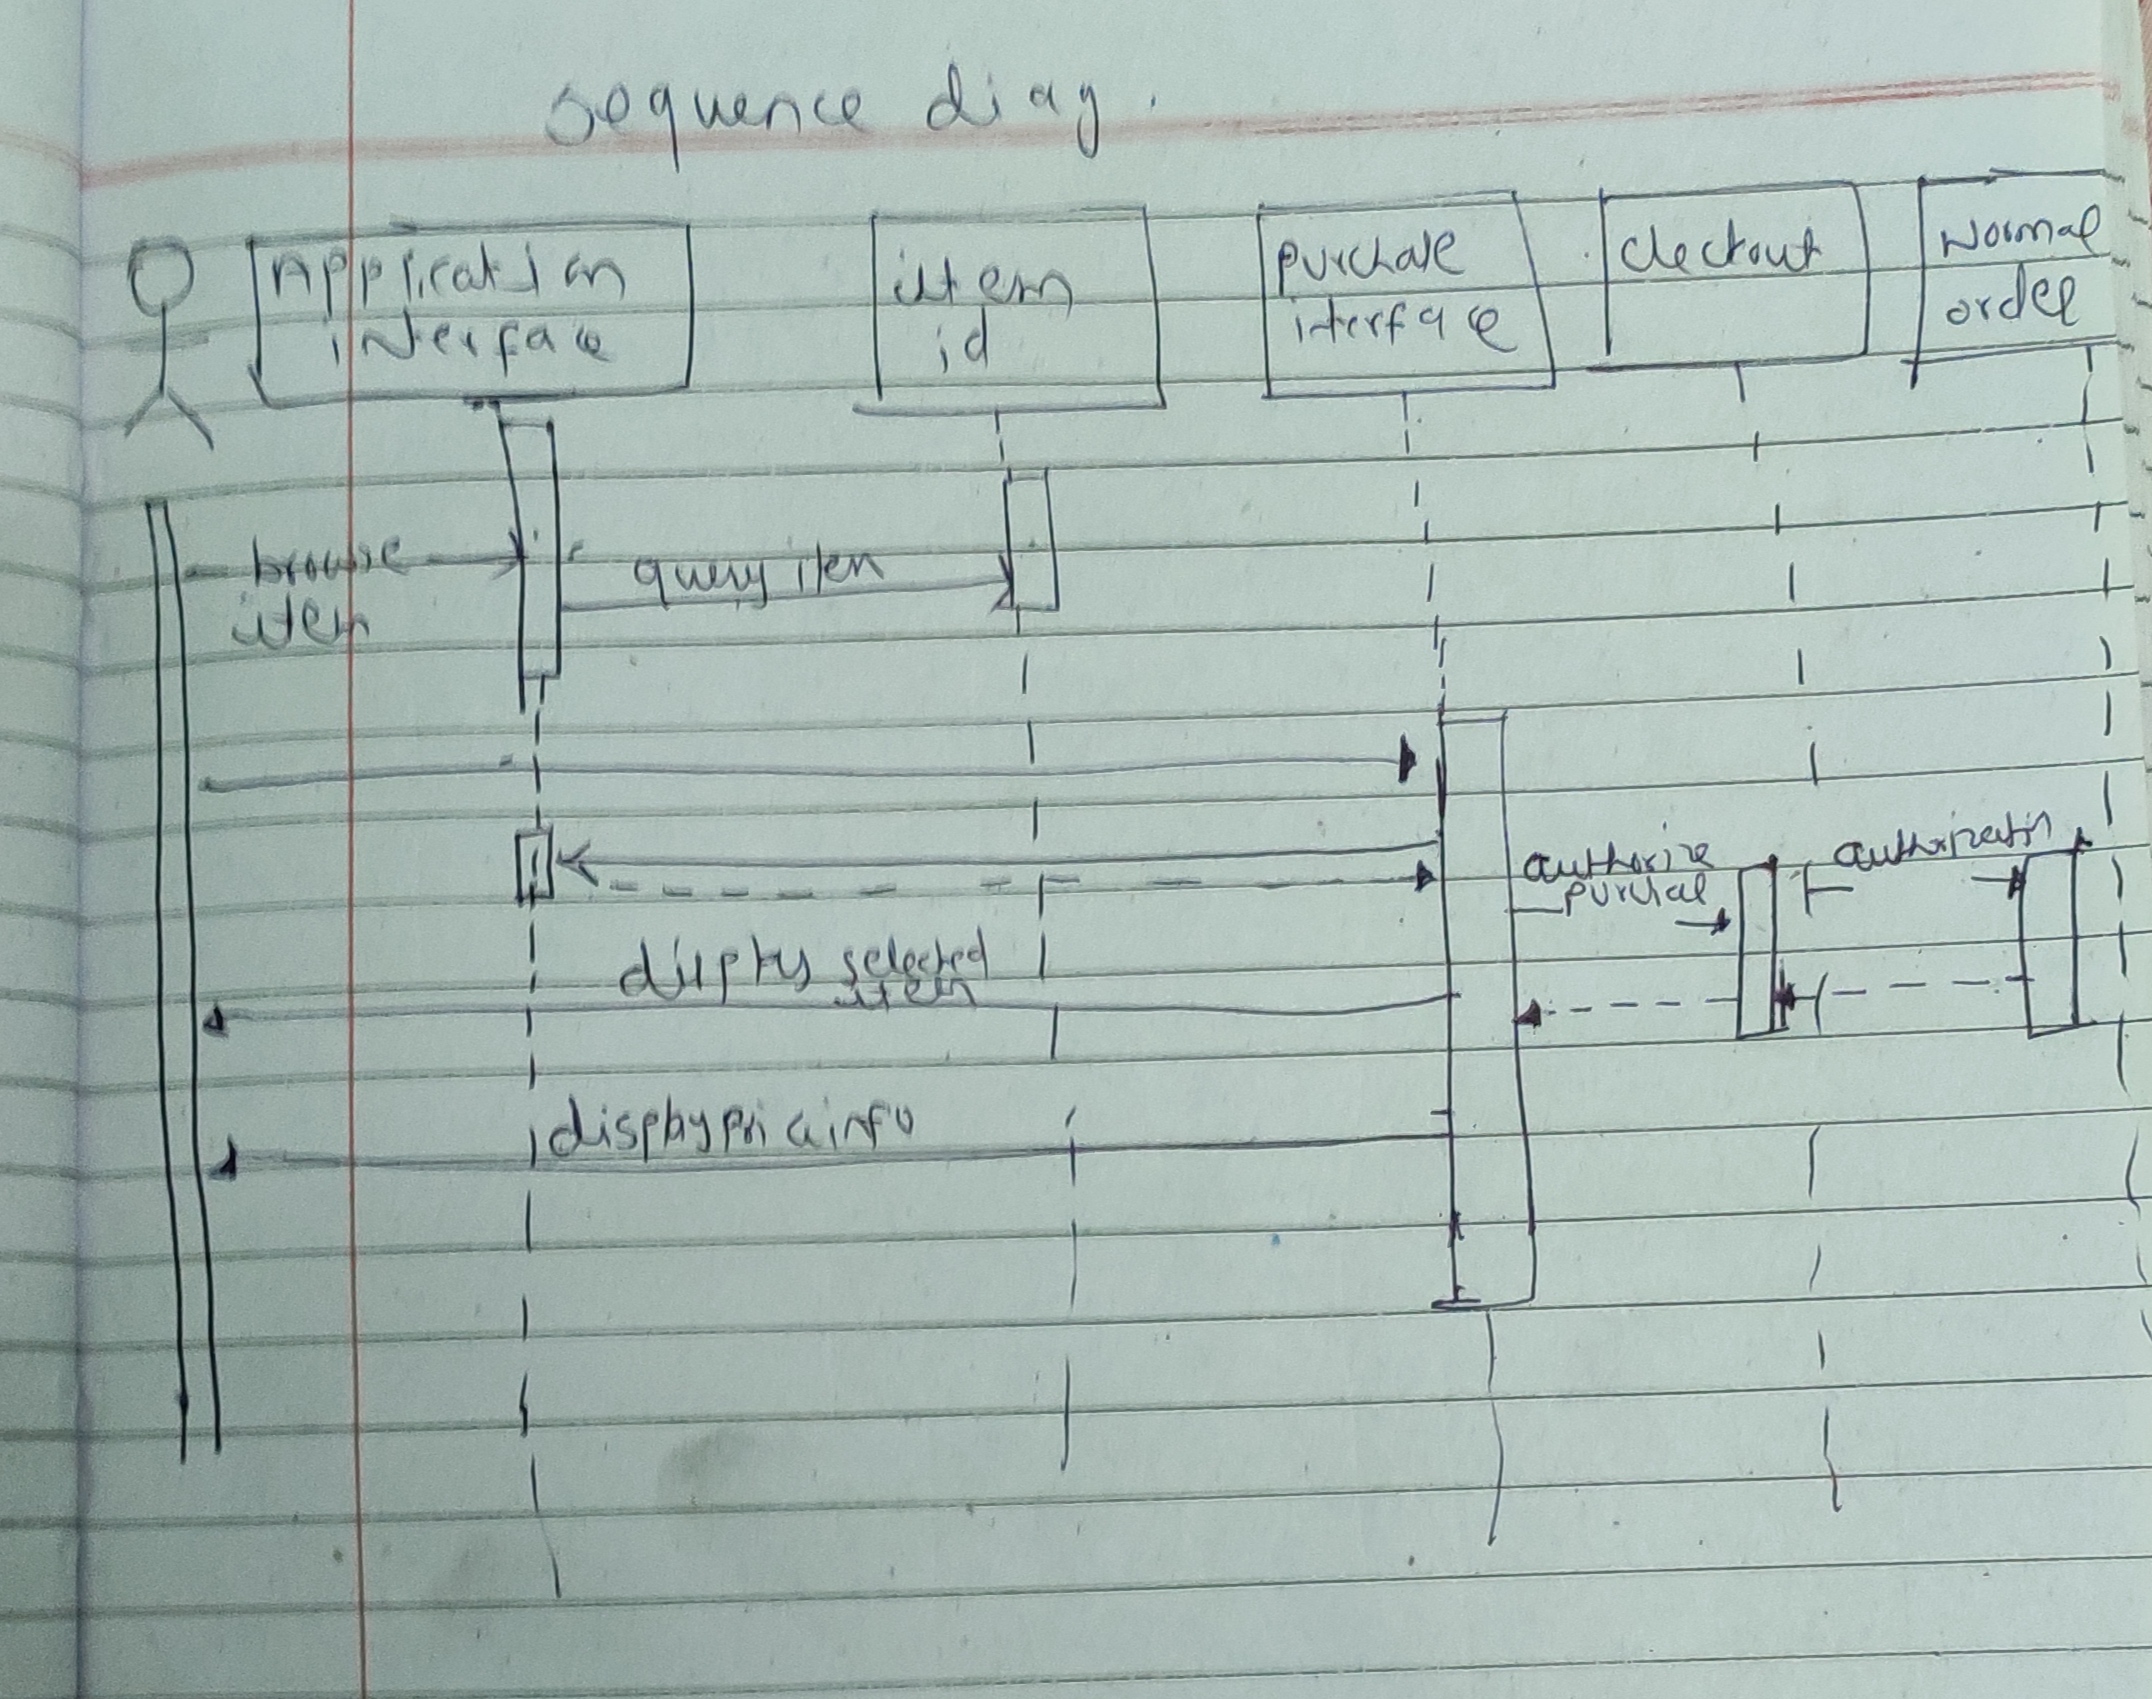 sequence diag.
Application
interface
item
id
purchase
interface
checkout
Normal
order
browse
item
query item
authorize
purchal
authorizatin
display selected
item
display price info